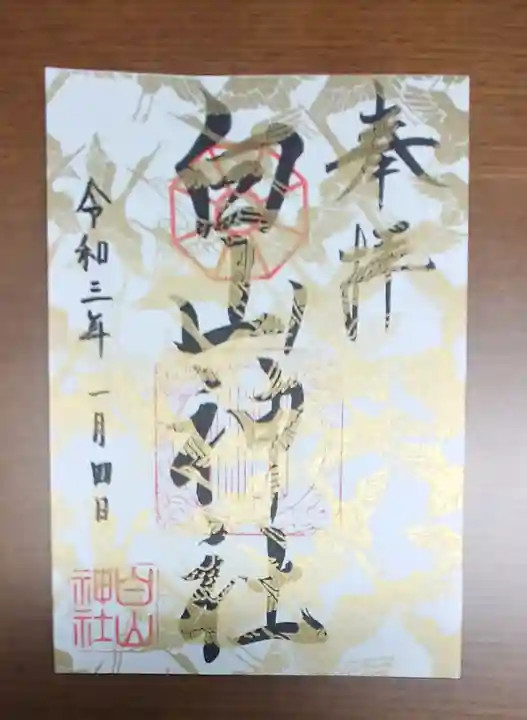 奉拝
白山神社
令和三年 一月四日
白山
神社